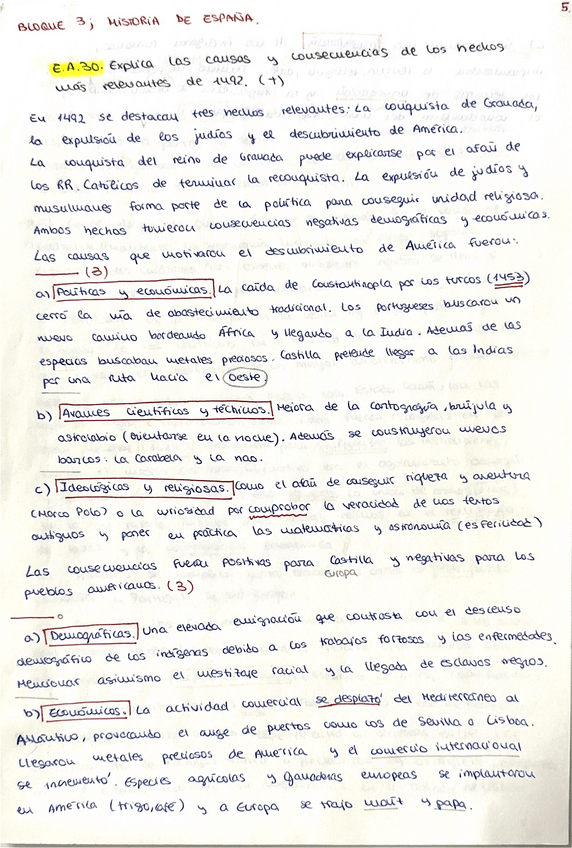 5
BLOQUE 3; HISTORIA DE ESPAÑA.
E.A.30. Explica las causas y consecuencias de los hechos
más relevantes de 1492. (+)
En 1492 se destacan tres hechos relevantes: La conquista de Granada,
la expulsión de los judíos y el descubrimiento de América.
La conquista del reino de Granada puede explicarse por el afán de
los RR. Católicos de terminar la reconquista. La expulsión de judíos y
musulmanes forma parte de la política para conseguir unidad religiosa.
Ambos hechos tuvieron consecuencias negativas demográficas y económicas.
Las causas que motivaron el descubrimiento de América fueron:
(3)
a) Políticas y económicas. La caída de Constantinopla por los turcos (1453)
cerró la vía de abastecimiento tradicional. Los portugueses buscaron un
nuevo camino bordeando África y llegando a la India. Además de las
especias buscaban metales preciosos. Castilla pretende llegar a las Indias
por una ruta hacia el Oeste.
b) Avances científicos y técnicos. Mejora de la cartografía, brújula y
astrolabio (orientarse en la noche). Además se construyeron nuevos
barcos: la Carabela y la nao.
c) Ideológicas y religiosas. Como el afán de conseguir riqueza y aventura
(Marco Polo) o la curiosidad por comprobar la veracidad de los textos
antiguos y poner en práctica las matemáticas y astronomía (esfericidad)
Las consecuencias fueron positivas para Castilla y negativas para los
Europa
pueblos americanos. (3)
a) Demográficas. Una elevada emigración que contrasta con el descenso
demográfico de los indígenas debido a los trabajos forzosos y las enfermedades.
Mencionar asimismo el mestizaje racial y la llegada de esclavos negros.
b) Económicas. La actividad comercial se desplazó del Mediterráneo al
Atlántico, provocando el auge de puertos como los de Sevilla o Lisboa.
Llegaron metales preciosos de América y el comercio internacional
se incrementó. Especies agrícolas y ganaderas europeas se implantaron
en América (trigo, café) y a Europa se trajo maíz y papa.